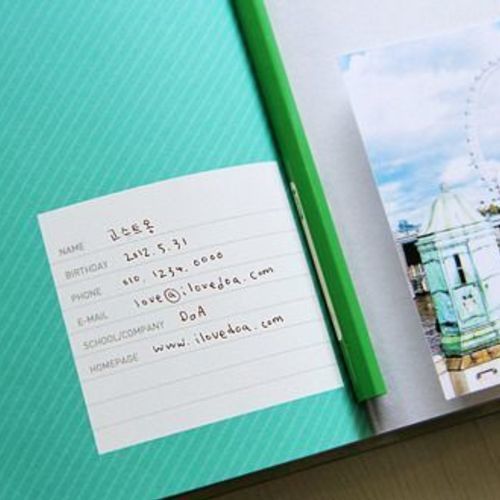 NAME 고스트옹
BIRTHDAY 2012. 5. 31
PHONE 010. 1234. 0000
E-MAIL love@ilovedoa.com
SCHOOL/COMPANY DoA
HOMEPAGE www.ilovedoa.com